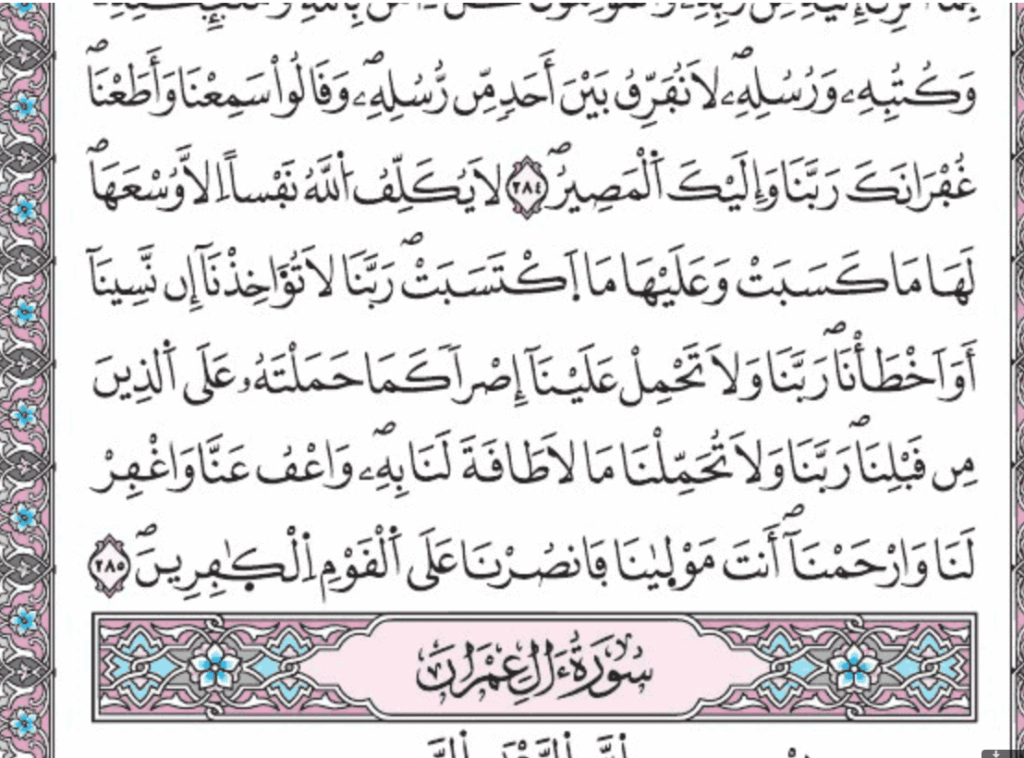 وَكُتُبِهِۦ وَرُسُلِهِۦۖ لَا نُفَرِّقُ بَيْنَ أَحَدٖ مِّن رُّسُلِهِۦۖ وَقَالُواْ سَمِعْنَا وَأَطَعْنَاۖ
غُفْرَانَكَ رَبَّنَا وَإِلَيْكَ اَ۬لْمَصِيرُۖ ٢٨٤ لَا يُكَلِّفُ اُ۬للَّهُ نَفْساً اِلَّا وُسْعَهَاۖ
لَهَا مَا كَسَبَتْ وَعَلَيْهَا مَا اَ۪كْتَسَبَتْۖ رَبَّنَا لَا تُوَ۬اخِذْنَآ إِن نَّسِينَآ
أَوَ اَخْطَأْنَاۖ رَبَّنَا وَلَا تَحْمِلْ عَلَيْنَآ إِصْراٗ كَمَا حَمَلْتَهُۥ عَلَى اَ۬لذِينَ
مِن قَبْلِنَاۖ رَبَّنَا وَلَا تُحَمِّلْنَا مَا لَا طَاقَةَ لَنَا بِهِۦۖ وَاعْفُ عَنَّا وَاغْفِرْ
لَنَا وَارْحَمْنَآۖ أَنتَ مَوْل۪يٰنَا فَانصُرْنَا عَلَى اَ۬لْقَوْمِ اِ۬لْكٰ۪فِرِينَۖ ٢٨٥
سُورَةُ ءَالِ عِمْرَانَ